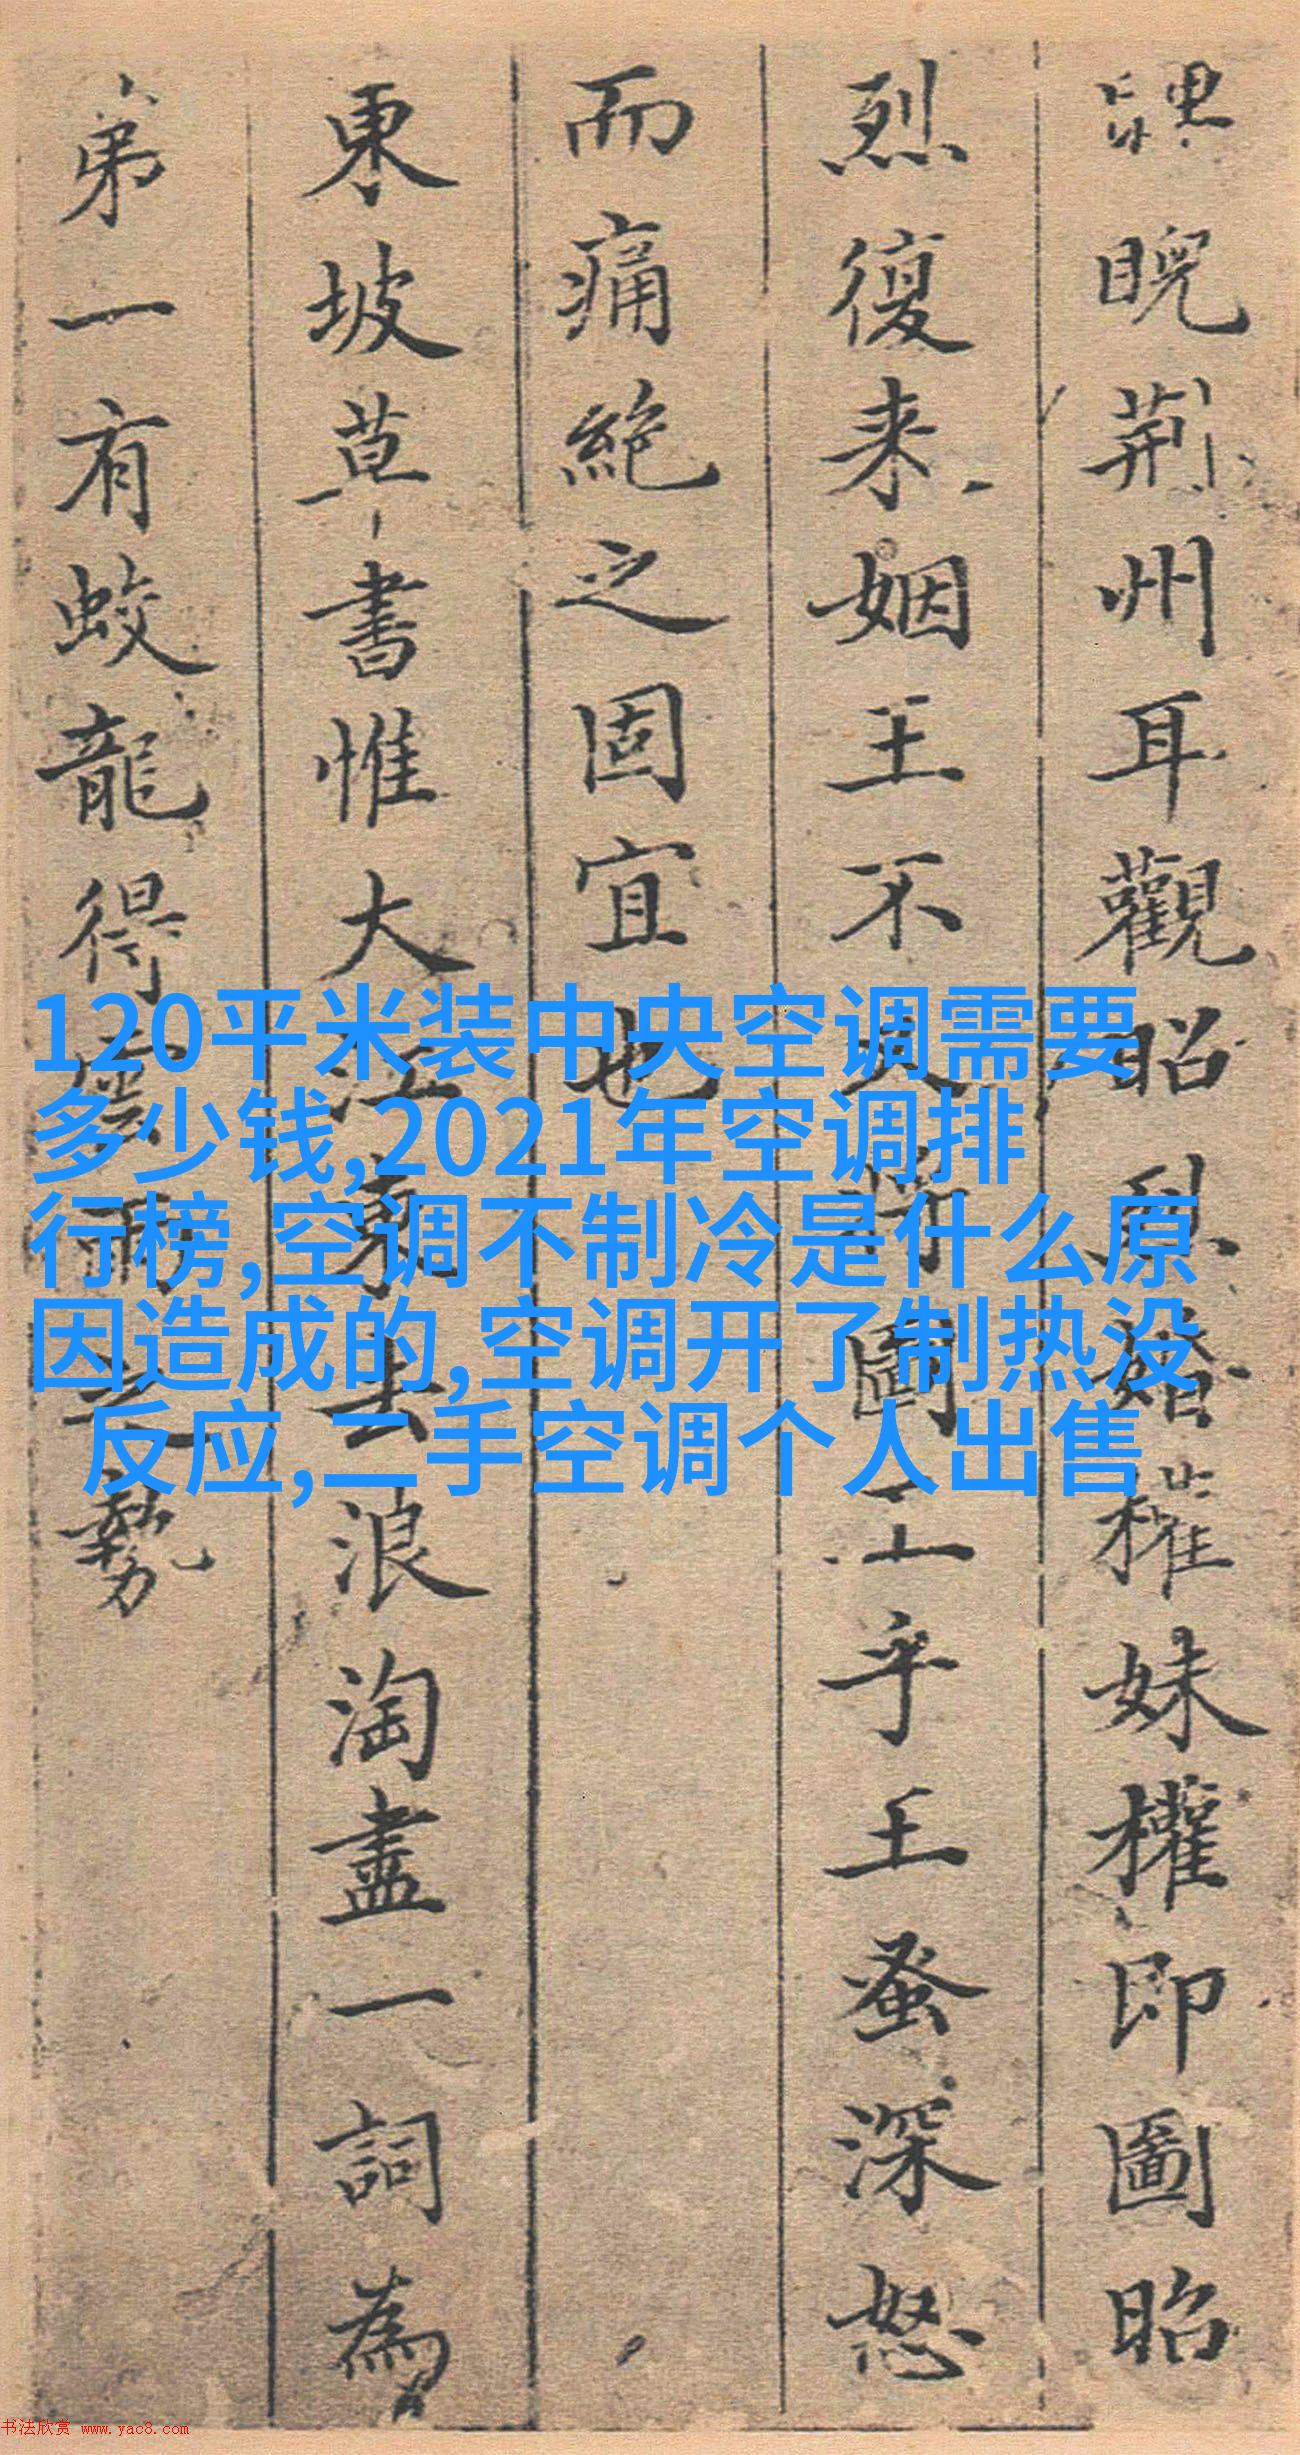 睨荆州耳觀昭烈婚權妹權即圖昭
烈復来姻王不
而痛絶之固宜也
乎王蚤深怒
東坡草書惟大江東去浪淘盡一詞為
弟一有蛟龍得雲雨之勢
120平米装中央空调需要
多少钱,2021年空调排
行榜,空调不制冷是什么原
因造成的,空调开了制热没
反应,二手空调个人出售
书法欣赏 www.yac8.com